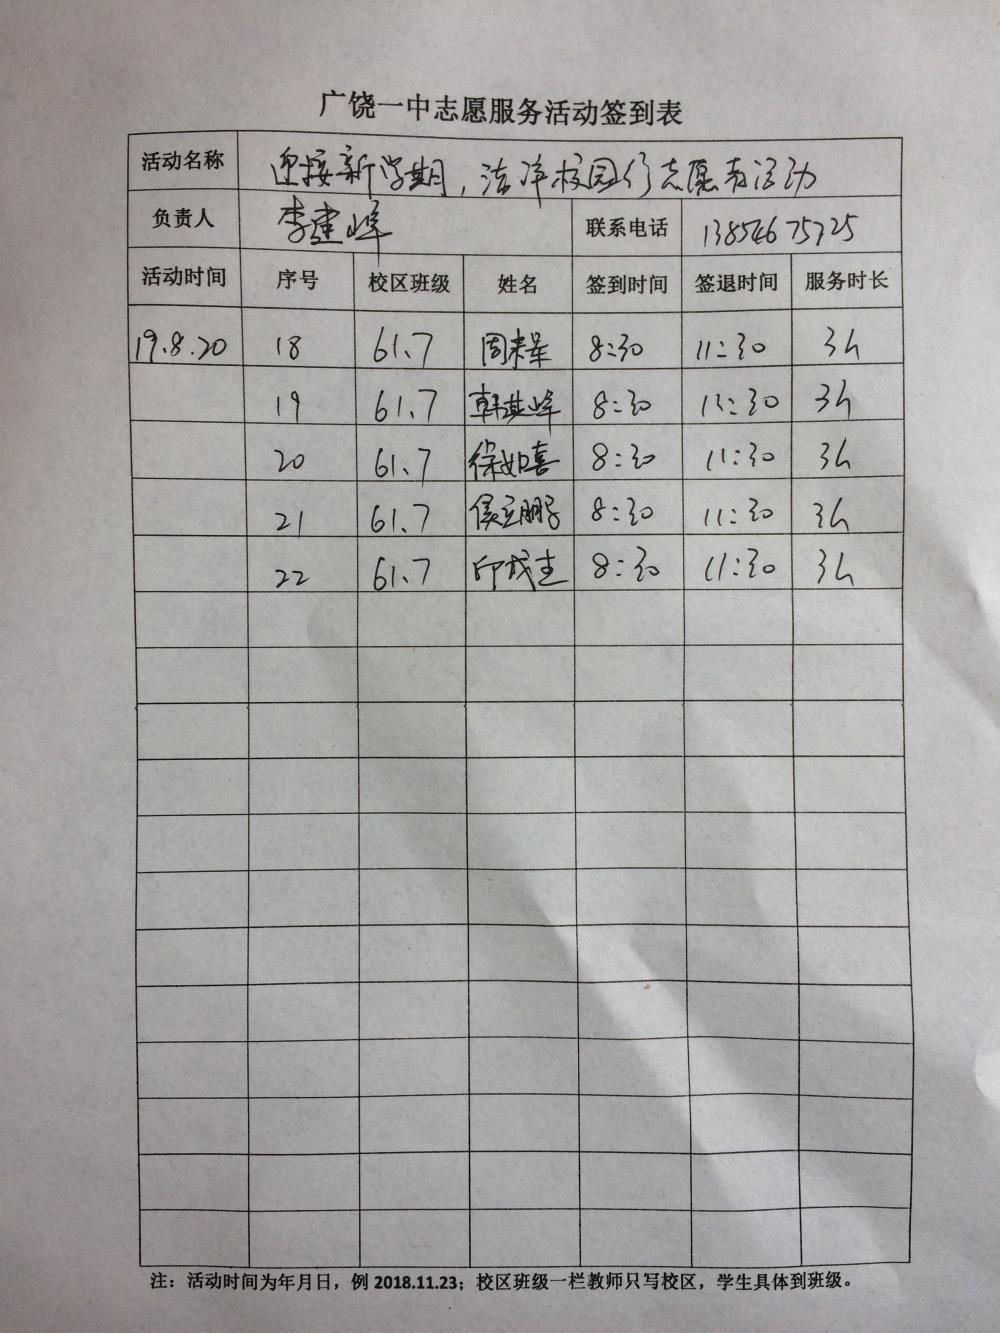 广饶一中志愿服务活动签到表
活动名称 迎接新学期，洁净校园行志愿者活动
负责人 李建峰 联系电话 13854675725
活动时间 序号 校区班级 姓名 签到时间 签退时间 服务时长
19.8.20 18 61.7 周来军 8:30 11:30 3h
19 61.7 韩其峰 8:30 11:30 3h
20 61.7 徐如喜 8:30 11:30 3h
21 61.7 侯立鹏 8:30 11:30 3h
22 61.7 8:30 11:30 3h
注：活动时间为年月日，例 2018.11.23；校区班级一栏教师只写校区，学生具体到班级。